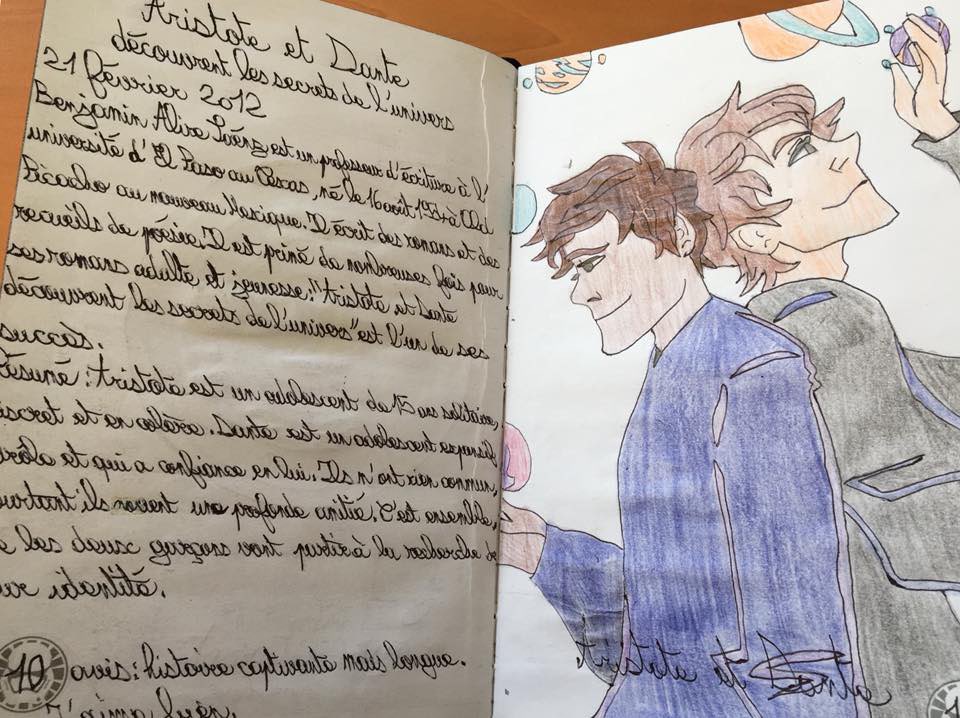 Aristote et Dante
découvrent les secrets de l'univers
21 février 2012
Benjamin Alire Sáenz est un professeur d'écriture à l'
université d'El Paso au Texas, né le 16 août 1954 à Old
Picacho au nouveau Mexique. Il écrit des romans et des
recueils de poésie. Il est primé de nombreuses fois pour
ses romans adulte et jeunesse. "Aristote et Dante
découvrent les secrets de l'univers" est l'un de ses
succès.
Résumé : Aristote est un adolescent de 15 ans solitaire,
discret et en colère. Dante est un adolescent expansif
drôle et qui a confiance en lui. Ils n'ont rien commun,
pourtant ils nouent une profonde amitié. C'est ensemble,
que les deux garçons vont partir à la recherche de
leur identité.
10 avis : histoire captivante mais longue.
J'aime bien.
Aristote et Dante